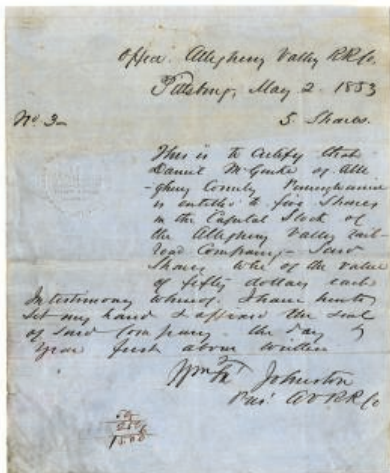 Office. Allegheny Valley RR Co.
Pittsburg, May 2. 1853
No 3 — 5 Shares.
This is to Certify that
Daniel of Alle
-gheny County Pennsylvania
is entitled to five Shares
in the Capital Stock of
the Allegheny Valley rail-
road Company — Said
Shares to be of the value
of fifty dollars each
In testimony whereof. I have hereto
set my hand & affixed the seal
of said Company — the day &
Year first above written
Wm F Johnston
Pres. A V R R Co